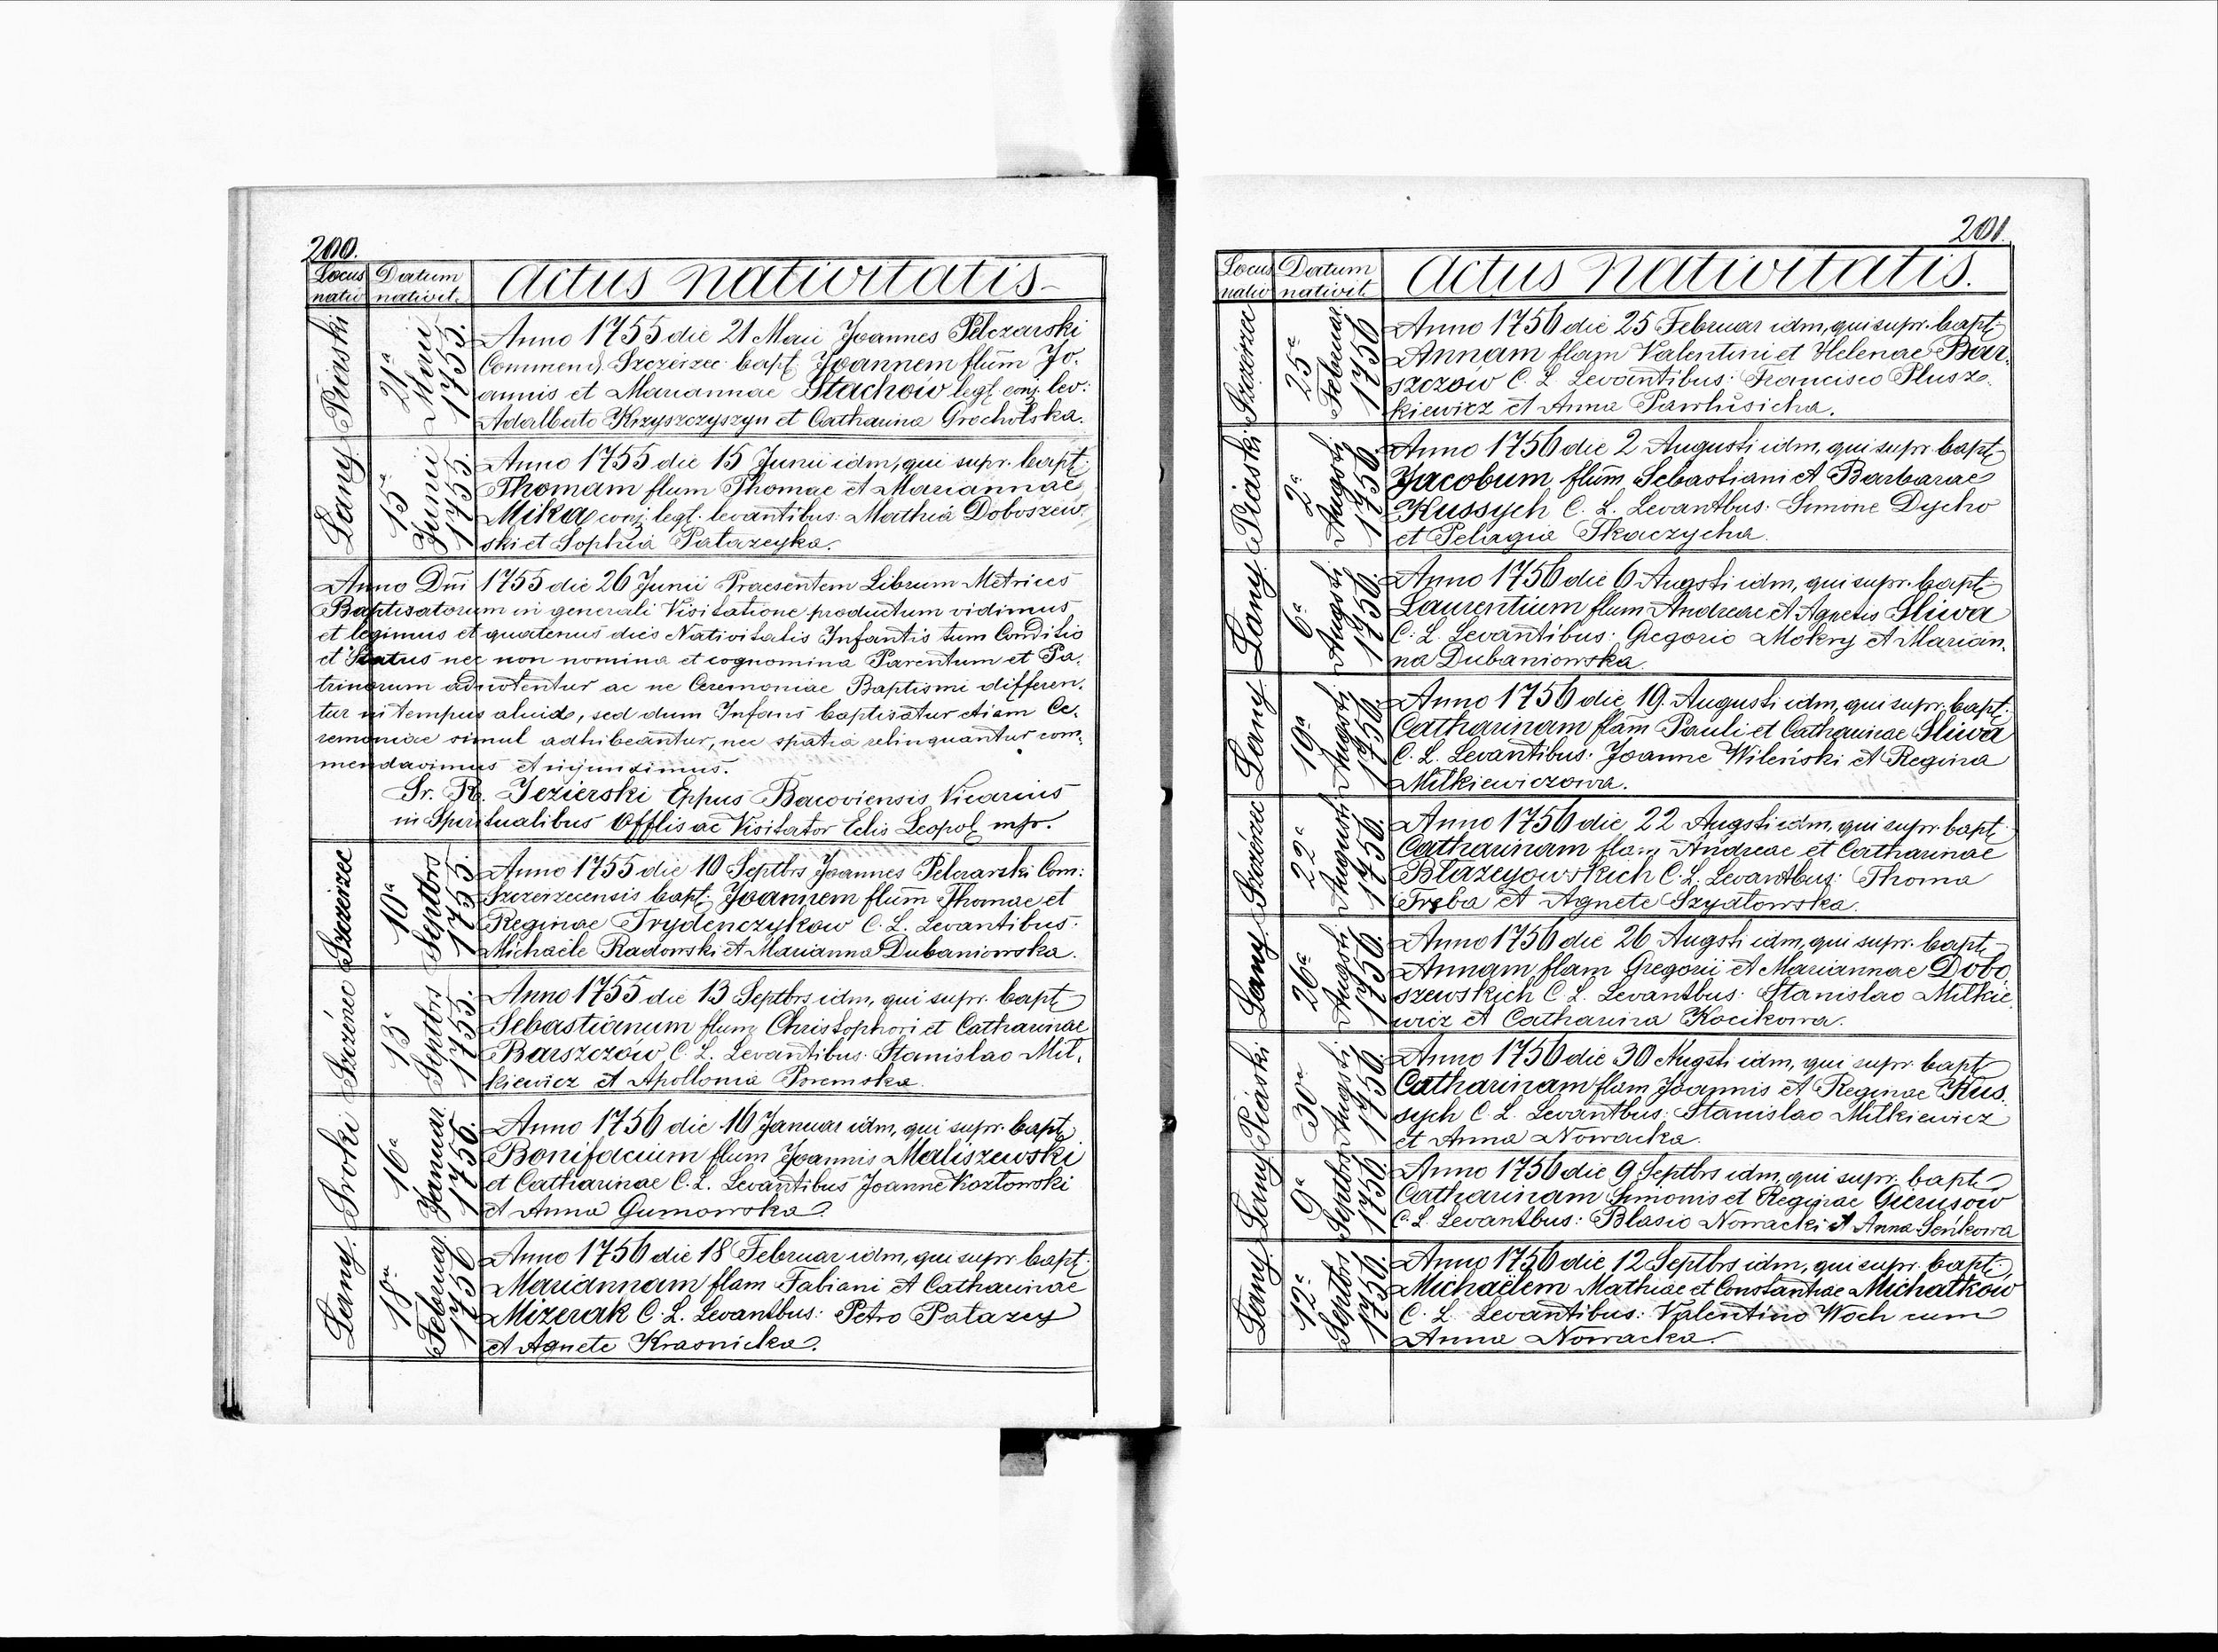 200.
Locus nativ
Datum nativit.
Actus nativitatis
Piaski
21a Maii 1755.
Anno 1755 die 21 Maii Joannes Pelczarski
Commend. Szczerzec bapt. Joannem flum Jo-
annis et Mariannae Stachow legt. conj. lev:
Adalberto Krzyszczyszyn et Catharina Grocholska.
Łany
15a Junii 1755.
Anno 1755 die 15 Junii idm, qui supr. bapt.
Thomam flum Thomae et Mariannae
Mika conj. legt. levantibus: Mathia Doboszew
ski et Sophia Patazeyka.
Anno Dni 1755 die 26 Junii Praesentem Librum Metrices
Baptisatorum in generali Visitatione productum vidimus
et legimus et quatenus dies Nativitatis Infantis tum Conditio
et Status nec non nomina et cognomina Parentum et Pa-
trinorum adnotentur ac ne Ceremoniae Baptismi differen-
tur in tempus aluid, sed dum Infans baptisatur etiam Ce-
remoniae simul adhibeantur, nec spatia relinquantur com-
mendavimus et injunximus.
Sr. R. Jezierski Eppus Bacoviensis Vicarius
in Spiritualibus Offlis ac Visitator Eclis Leopol mpr.
Szczerzec
10a Septbrs 1755.
Anno 1755 die 10 Septbrs Joannes Pelczarski Com:
Szczerzecensis bapt. Joannem flum Thomae et
Reginae Trydenczykow C. L. Levantibus:
Michaele Radowski et Marianna Dubaniowska.
Szczérzec
13a Septbrs 1755.
Anno 1755 die 13 Septbrs idm, qui supr. bapt
Sebastianum flum Christophori et Catharinae
Barszczów C. L. Levantibus. Stanislao Mił-
kiewicz et Apollonia Poremska.
Sroki
16a Januar 1756.
Anno 1756 die 16 Januar idm, qui supr. bapt
Bonifacium flum Joannis Maliszewski
et Catharinae C. L. Levantibus Joanne Kozłowski
et Anna Gumowska.
Łany.
18a Februar 1756
Anno 1756 die 18 Februar idm, qui supr. bapt.
Mariannam flam Fabiani et Catharinae
Mizerak C. L. Levantbus: Petro Patazey
et Agnete Krasnicka.
201.
Locus nativ
Datum nativit.
Actus nativitatis.
Szczérza
25a Februar 1756
Anno 1756 die 25 Februar idm, qui supr. bapt
Annam flam Valentini et Helenae Bar-
szczów C. L. Levantibus: Francisco Plusz-
kiewicz et Anna Pawlusicha.
Piaski
2a Augsti 1756.
Anno 1756 die 2 Augusti idm, qui supr. bapt
Jacobum flum Sebastiani et Barbarae
Kussych C. L. Levantbus: Simone Dycho
et Pelagia Tkaczycha.
Łany
6a Augsti 1756.
Anno 1756 die 6 Augsti idm, qui supr. bapt
Laurentium flum Andreae et Agnetis Sliwa
C. L. Levantibus: Gregorio Mokry et Marian-
na Dubaniowska.
Łany
19a Augsti 1756.
Anno 1756 die 19. Augusti idm, qui supr. bapt.
Catharinam flam Pauli et Catharinae Sliwa
C. L. Levantibus: Joanne Wileński et Regina
Miłkiewiczowa.
Szczérzec
22a Augusti 1756.
Anno 1756 die 22 Augsti idm, qui supr. bapt.
Catharinam flam Andreae et Catharinae
Błazeyowskich C. L. Levantbus: Thoma
Tręba et Agnete Szydłowska.
Łany
26a Augsti 1756.
Anno 1756 die 26 Augsti idm, qui supr. bapt
Annam flam Gregorii et Mariannae Dobo
szewskich C L. Levantbus: Stanislao Miłkie
wicz et Catharina Kocikowa.
Piaski
30a Augsti 1756.
Anno 1756 die 30 Augsti idm, qui supr. bapt
Catharinam flam Joannis et Reginae Kus-
sych C. L. Levantbus: Stanislao Miłkiewicz
et Anna Nowacka.
Łany
9a Septbrs 1756.
Anno 1756 die 9 Septbrs idm, qui supr. bapt
Catharinam Simonis et Reginae Gierusów
C. L. Levantbus: Blasio Nowacki et Anna Seńkowa
Łany.
12a Septbrs 1756.
Anno 1756 die 12 Septbrs idm, qui supr. bapt.
Michaëlem Mathiae et Constantiae Michałków
C. L. Levantibus: Valentino Woch cum
Anna Nowacka.